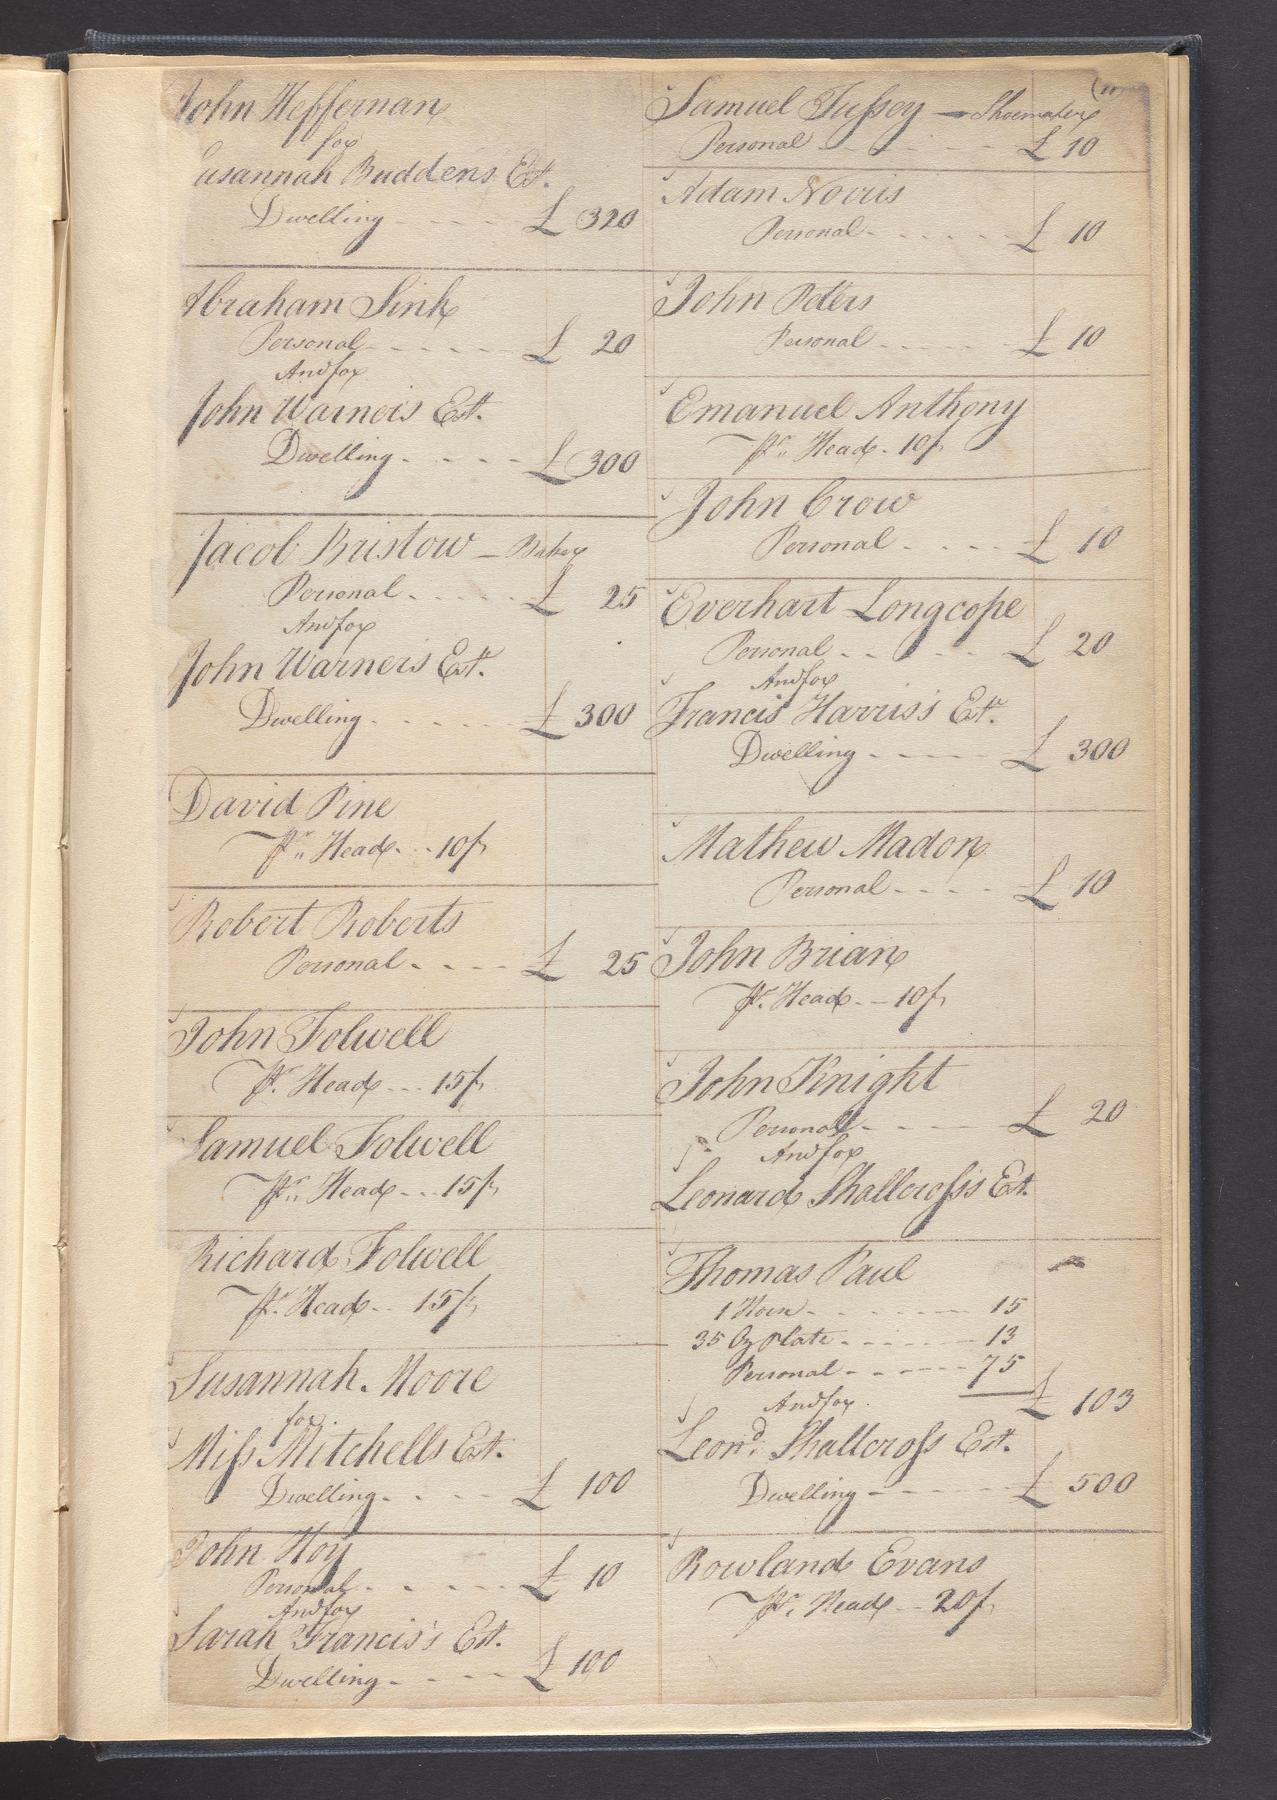 John Heffernan
for
Susannah Budden's Est.
Dwelling - - - - £ 320
Abraham Sink
Personal - - - - - £ 20
And for
John Warner's Est.
Dwelling - - - - £ 300
Jacob Bristow - Baker
Personal - - - - - £ 25
And for
John Warner's Est.
Dwelling - - - - - £ 300
David Pine
Pr. Head - - 10/,
Robert Roberts
Personal - - - - £ 25
John Folwell
Pr. Head - - - 15/,
Samuel Folwell
Pr. Head - - - 15/,
Richard Folwell
Pr. Head - - 15/,
Susannah Moore
for
Miss Mitchells Est.
Dwelling - - - - £ 100
John Hoy
Personal - - - - - £ 10
And for
Sarah Francis's Est.
Dwelling - - - - £ 100
(11)
Samuel Tussey - Shoemaker
Personal - - - - - £ 10
Adam Norris
Personal - - - - - £ 10
John Peters
Personal - - - - - £ 10
Emanuel Anthony
Pr. Head - 10/,
John Crow
Personal - - - - £ 10
Everhart Longcope
Personal - - - - - £ 20
And for
Francis Harris's Est.
Dwelling - - - - - £ 300
Mathew Madon
Personal - - - - £ 10
John Brian
Pr. Head - - 10/,
John Knight
Personal - - - - - £ 20
And for
Leonard Shallcross's Est.
Thomas Paul
1 Horse - - - - - - 15
35 Oz Plate - - - - - 13
Personal - - - - - 75
And for £ 103
Leond. Shallcross Est.
Dwelling - - - - - £ 500
Rowland Evans
Pr. Head - - 20/,